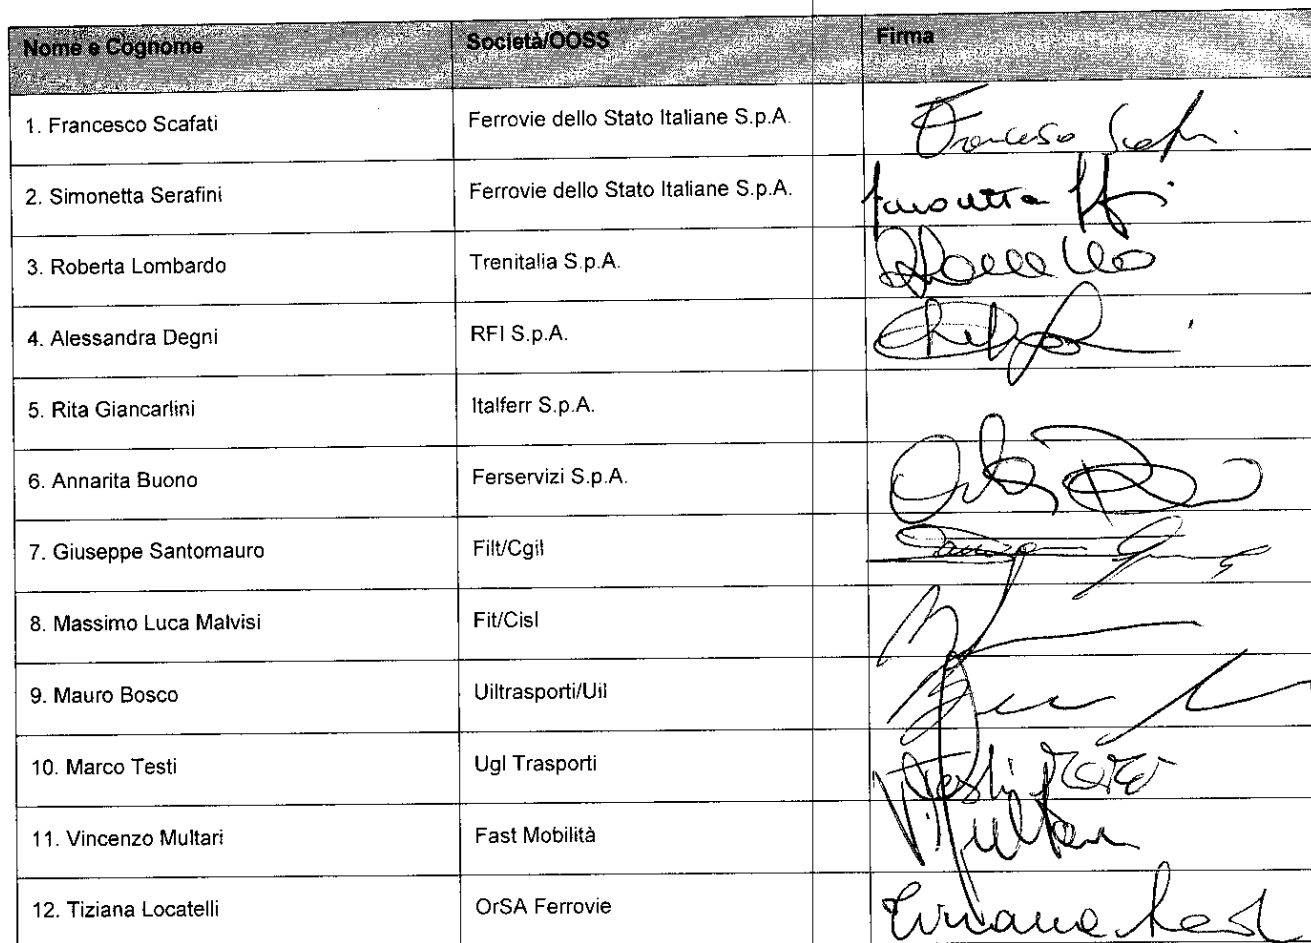 Nome e Cognome Società/OOSS Firma
1. Francesco Scafati Ferrovie dello Stato Italiane S.p.A. Francesco
2. Simonetta Serafini Ferrovie dello Stato Italiane S.p.A.
3. Roberta Lombardo Trenitalia S.p.A.
4. Alessandra Degni RFI S.p.A.
5. Rita Giancarlini Italferr S.p.A.
6. Annarita Buono Ferservizi S.p.A.
7. Giuseppe Santomauro Filt/Cgil
8. Massimo Luca Malvisi Fit/Cisl
9. Mauro Bosco Uiltrasporti/Uil
10. Marco Testi Ugl Trasporti Testi
11. Vincenzo Multari Fast Mobilità
12. Tiziana Locatelli OrSA Ferrovie Tiziana